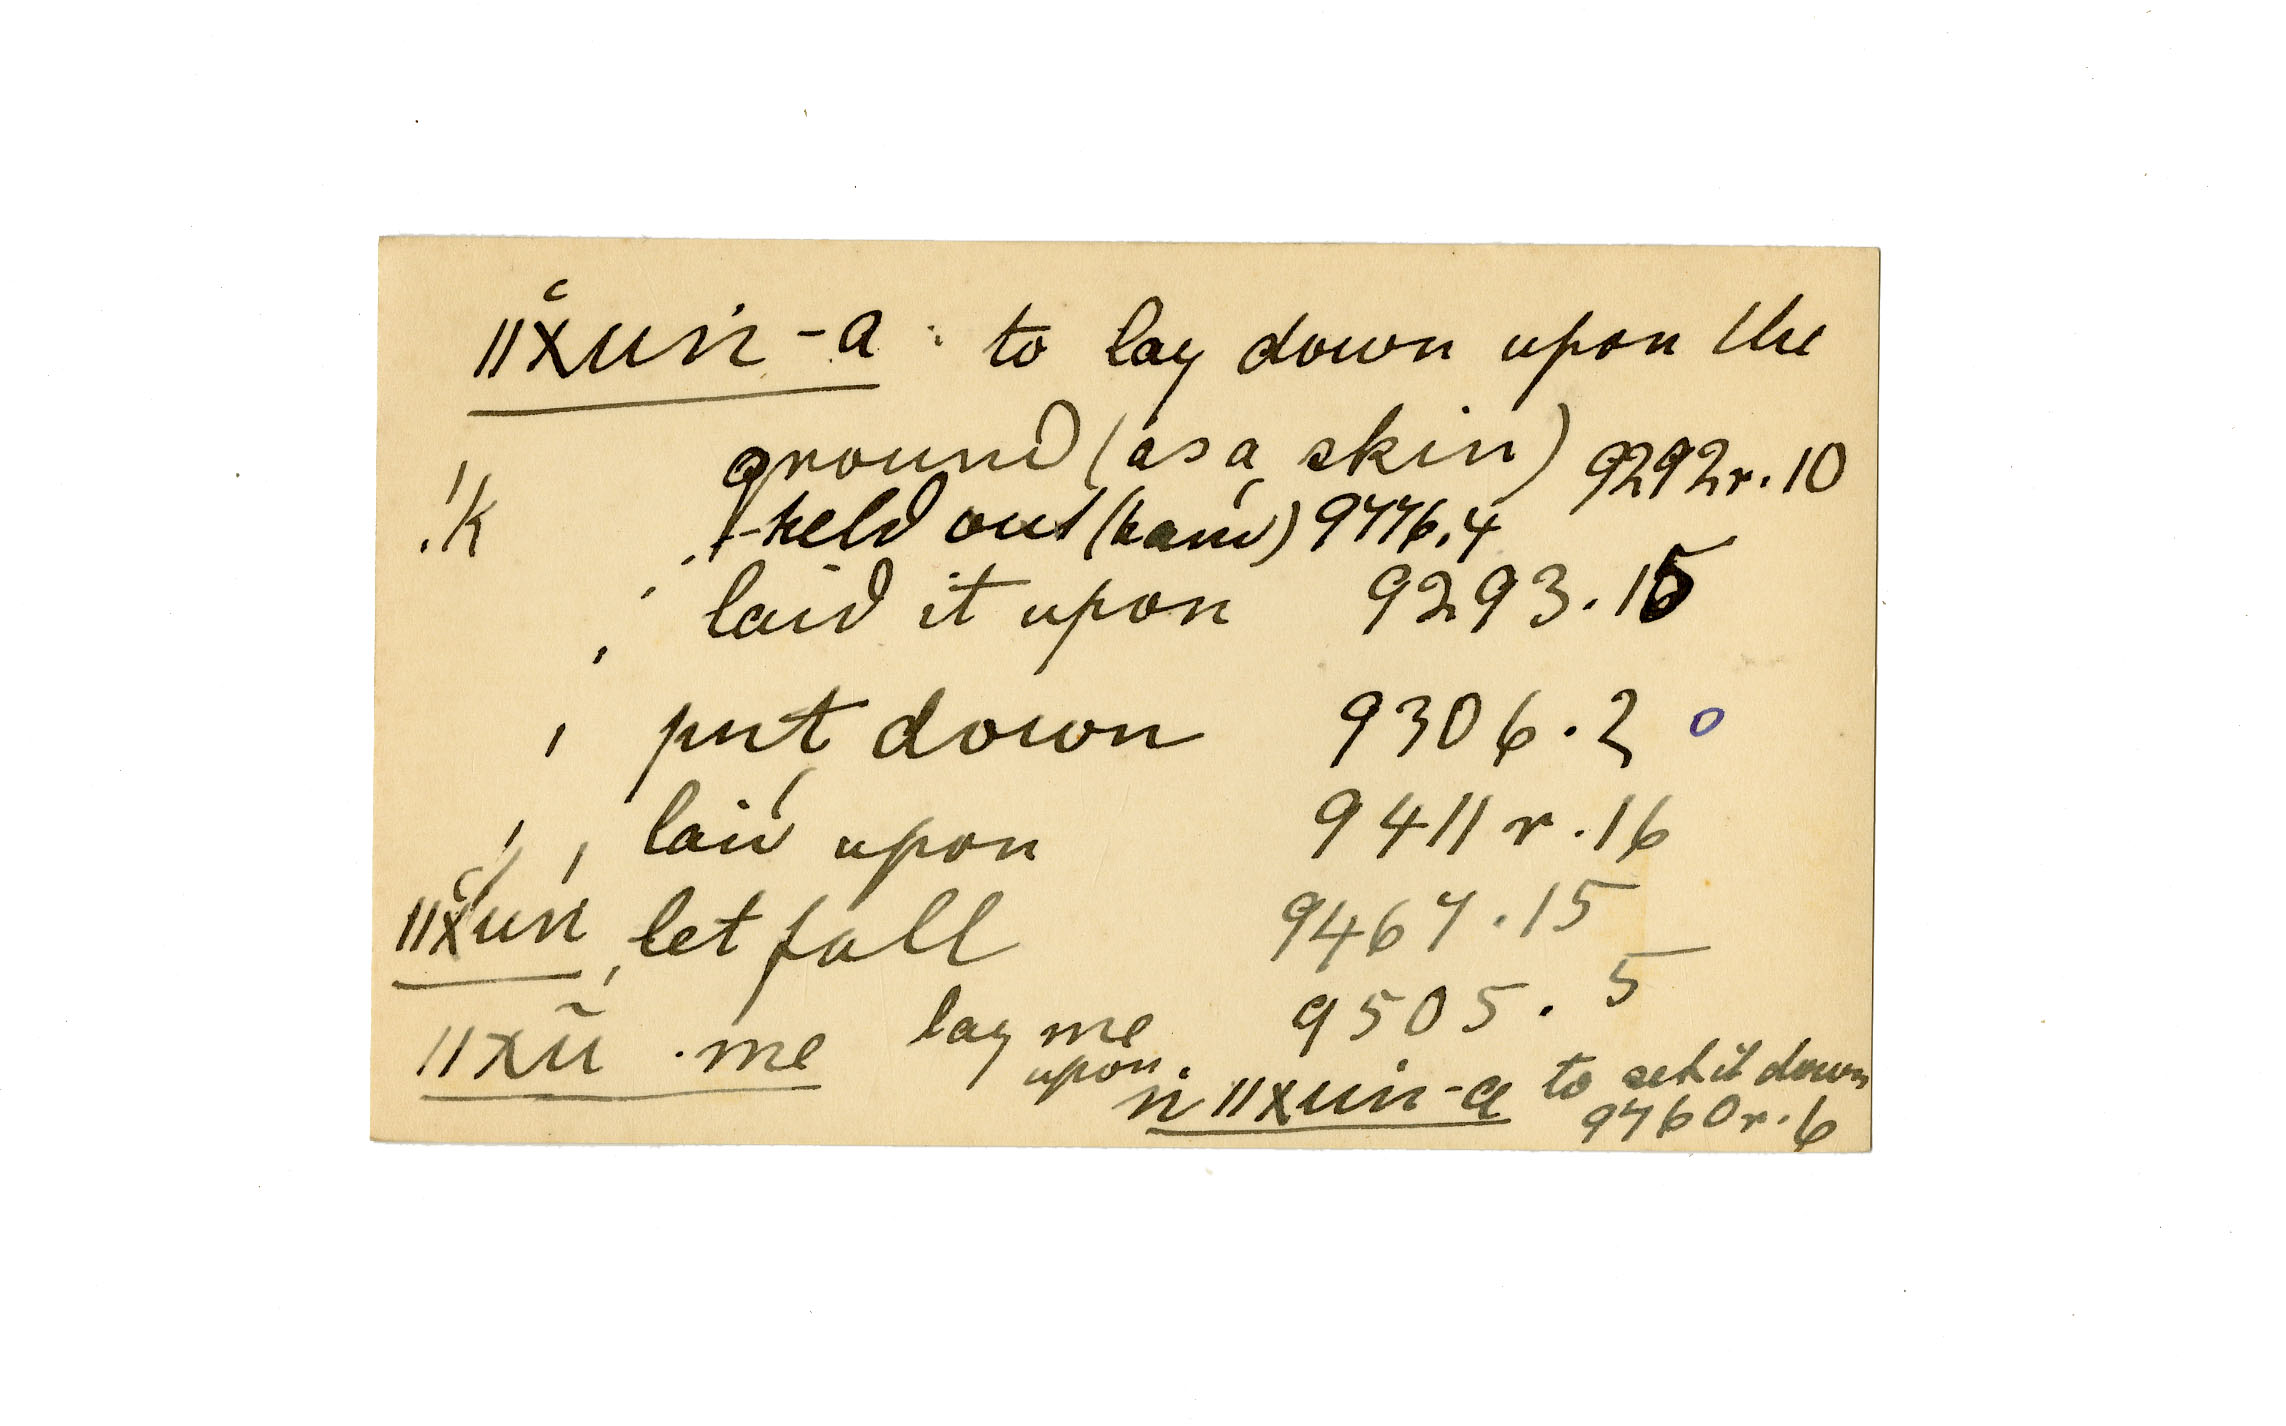 ǁx̆uṅ-a : to lay down upon the
ground (as a skin) 9292r.10
!k held out (hand) 9776.4
laid it upon 9293.15
put down 9306.20
laid upon 9411r.16
ǁx̆uṅ let fall 9467.15
ǁxũ .me lay me upon 9505.5
ṅ ǁxuṅ-a to set it down
9760r.6